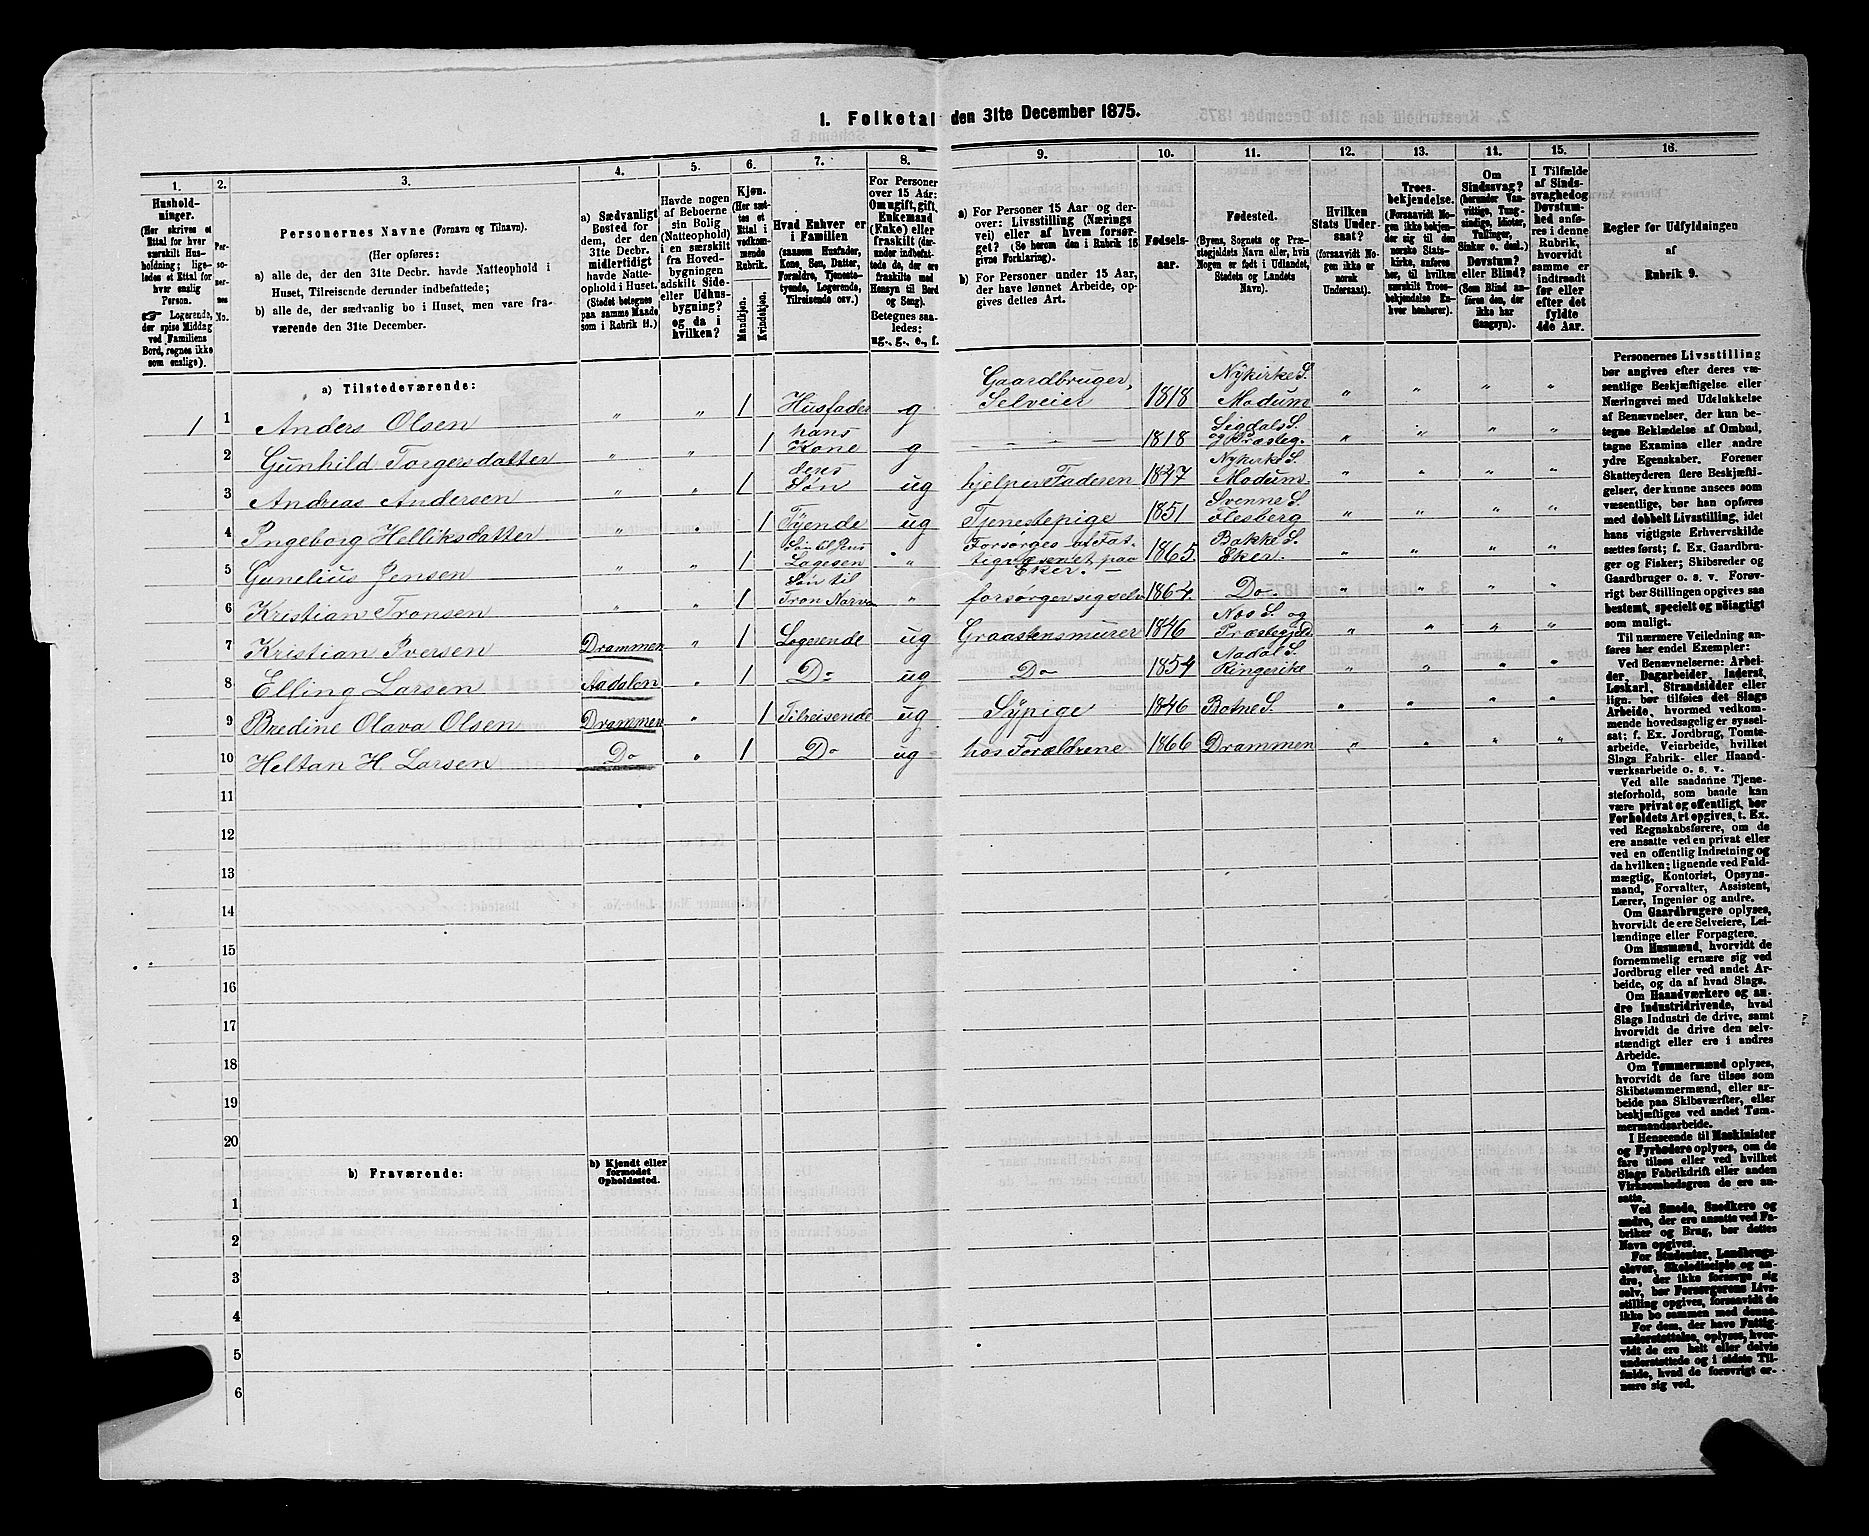 1. Folketal den 31te December 1875.
1. 2. 3. 4. 5. 6. 7. 8. 9. 10. 11. 12. 13. 14. 15. 16.
Hushold-
ninger.
(Her skrives et
Ettal for hver
særskilt Hus-
holdning; lige-
ledes et Ettal for
hver enslig
Person.
☞ Logerende,
der spise Middag
ved Familiens
Bord, regnes ikke
som enslige).
Per-
so-
ner-
nes
No.
Personernes Navne (Fornavn og Tilnavn).
(Her opføres:
a) alle de, der den 31te Decbr. havde Natteophold i
Huset, Tilreisende derunder indbefattede;
b) alle de, der sædvanlig bo i Huset, men vare fra-
værende den 31te December.
a) Sædvanligt
Bosted for
dem, der den
31te Decbr.
midlertidigt
havde Natte-
ophold i Huset.
(Stedet betegnes
paa samme Maade
som i Rubrik 11.)
Havde nogen
af Beboerne
sin Bolig
(Natteophold)
i en særskilt
fra Hoved-
bygningen
adskilt Side-
eller Udhus-
bygning?
og da i
hvilken?
Kjøn.
(Her sæt-
tes et
Ettal i
vedkom-
mende
Rubrik.
Mandkjøn.
Kvindekjøn.
Hvad Enhver er
i Familien
(saasom Husfader,
Kone, Søn, Datter,
Forældre, Tjeneste-
tyende, Logerende,
Tilreisende osv.)
For Personer
over 15 Aar:
Om ugift, gift,
Enkemand
(Enke) eller
fraskilt (der-
under indbefat-
tede de, der ere
fraskilte med
Hensyn til Bord
og Seng).
Betegnes saa-
ledes:
ug., g., e., f.
a) For Personer 15 Aar og der-
over: Livsstilling (Nærings
vei) eller af hvem forsør-
get? (Se herom den i Rubrik 16
givne Forklaring).
b) For Personer under 15 Aar,
der have lønnet Arbeide, op-
gives dettes Art.
Fødsels-
aar.
Fødested.
(Byens, Sognets og Præ-
stegjeldets Navn eller, hvis
Nogen er født i Udlandet,
Stedets og Landets
Navn).
Hvilken
Stats Under-
saat?
(forsaavidt No-
gen ikke er
norsk
Undersaat).
Troes-
bekjendelse.
(Forsaavidt No-
gen ikke bekjen-
der sig til den
norske Stats-
kirke, anføres
her, til hvilken
særskilt Troes-
bekjendelse En-
hver henhører).
Om
Sindssvag?
(herunder Van-
vittige, Tung-
sindige, Idioter,
Tullinger,
Sinker o. desl.)
Døvstum?
eller Blind?
(Som Blind an-
føres den, der
ikke har
Gangsyn).
I Tilfælde
af Sinds-
svaghed og
Døvstum-
hed anfø-
res i denne
Rubrik,
hvorvidt
samme er
indtraadt
før eller
efter det
fyldte
4de Aar.
Regler for Udfyldningen
af
Rubrik 9.
a) Tilstedeværende:
1 1 Anders Olsen " " 1 Husfader g Gaardbruger, Selveier 1818 Nykirke S. Modum " " " "
2 Gunhild Torgersdatter " " 1 hans Kone g — — — 1818 Sigdals S. og Præsteg. " " " "
3 Andreas Andersen " " 1 deres Søn ug hjelper Faderen 1847 Nykirke S. Modum " " " "
4 Ingeborg Helliksdatter " " 1 Tyende ug Tjenestepige 1851 Svenne S. Flesberg " " " "
5 Gunelius Jensen " " 1 Søn til Jens Lagesen " Forsørges af Fat- tigvæsenet paa Eker. — 1865 Bakke S. Eker " " " "
6 Kristian Tronsen " " 1 Søn til Tron Narve " forsørger sig selv 1862 Do " " " "
7 Kristian Iversen Drammen " 1 Logerende ug Graastensmurer 1846 Næs S. og Præstegjeld " " " "
8 Elling Larsen Aadalen " 1 Do ug Do 1854 Aadal S. Ringerike " " " "
9 Bredine Olava Olsen Drammen " 1 Tilreisende ug Sypige 1846 Botne S. " " " "
10 Heltan H. Larsen Do " 1 Do ug hos Forældrene 1866 Drammen " " " "
11
12
13
14
15
16
17
18
19
20
b) Fraværende:
b) Kjendt eller
formodet
Opholdssted.
1
2
3
4
5
6
Personernes Livsstilling
bør angives efter deres væ-
sentlige Beskjæftigelse eller
Næringsvei med Udelukkelse
af Benævnelser, der kun be-
tegne Beklædelse af Ombud,
tagne Examina eller andre
ydre Egenskaber. Forener
Skatteyderen flere Beskjæfti-
gelser, der kunne ansees som
væsentlige, bør han opføres
med dobbelt Livsstilling, idet
hans vigtigste Erhvervskilde
sættes først; f. Ex. Gaardbru-
ger og Fisker; Skibsreder og
Gaardbruger o. s. v. Forøv-
rigt bør Stillingen opgives saa
bestemt, specielt og nøiagtigt
som muligt.
Til nærmere Veiledning an-
føres her endel Exempler:
Ved Benævnelserne: Arbei-
der, Dagarbeider, Inderst,
Løskarl, Strandsidder eller
lign. bør tilføies det Slags
Arbeide, hvormed vedkom-
mende hovedsagelig er syssel-
sat; f. Ex. Jordbrug, Tomte-
arbeide, Veiarbeide, hvilket
Slags Fabrik- eller Haand-
værksarbeide o. s. v.
Ved alle saadanne Tjene-
steforhold, som baade kan
være privat og offentligt, bør
Forholdets Art opgives, t. Ex.
ved Regnskabsførere, om de
ere ansatte ved en privat eller
ved en offentlig Indretning og
da hvilken; lignende ved Fuld-
mægtig, Kontorist, Opsyns-
mand, Forvalter, Assistent,
Lærer, Ingeniør og andre.
Om Gaardbrugere oplyses,
hvorvidt de ere Selveiere, Lei-
lændinge eller Forpagtere.
Om Husmænd, hvorvidt de
fornemmelig ernære sig ved
Jordbrug eller ved andet Ar-
beide, og da af hvad Slags.
Om Haandværkere og an-
dre Industridrivende, hvad
Slags Industri de drive, samt
hvorvidt de drive den selv-
stændigt eller ere i andres
Arbeide.
Om Tømmermænd oplyses,
hvorvidt de fare tilsøs som
Skibstømmermænd, eller ar-
beide paa Skibsværfter, eller
beskjæftiges ved andet Tøm-
mermandsarbeide.
I Henseende til Maskinister
og Fyrbødere oplyses, om de
fare tilsøs eller ved hvilket
Slags Fabrikdrift eller anden
Virksomhedsgren de ere an-
satte.
Ved Smede, Snedkere og
andre, der ere ansatte ved Fa-
briker og Brug, bør dettes
Navn opgives.
For Studenter, Landbrugs-
elever, Skoledisciple og an-
dre, der ikke forsørge sig
selv, bør Forsørgerens Livs-
stilling opgives, forsaavidt de
ikke bo sammen med denne.
For dem, der have Fattig-
understøttelse, oplyses, hvor-
vidt de ere helt eller delvis
understøttede og i sidste Til-
fælde, hvad de forøvrigt er-
nære sig ved.